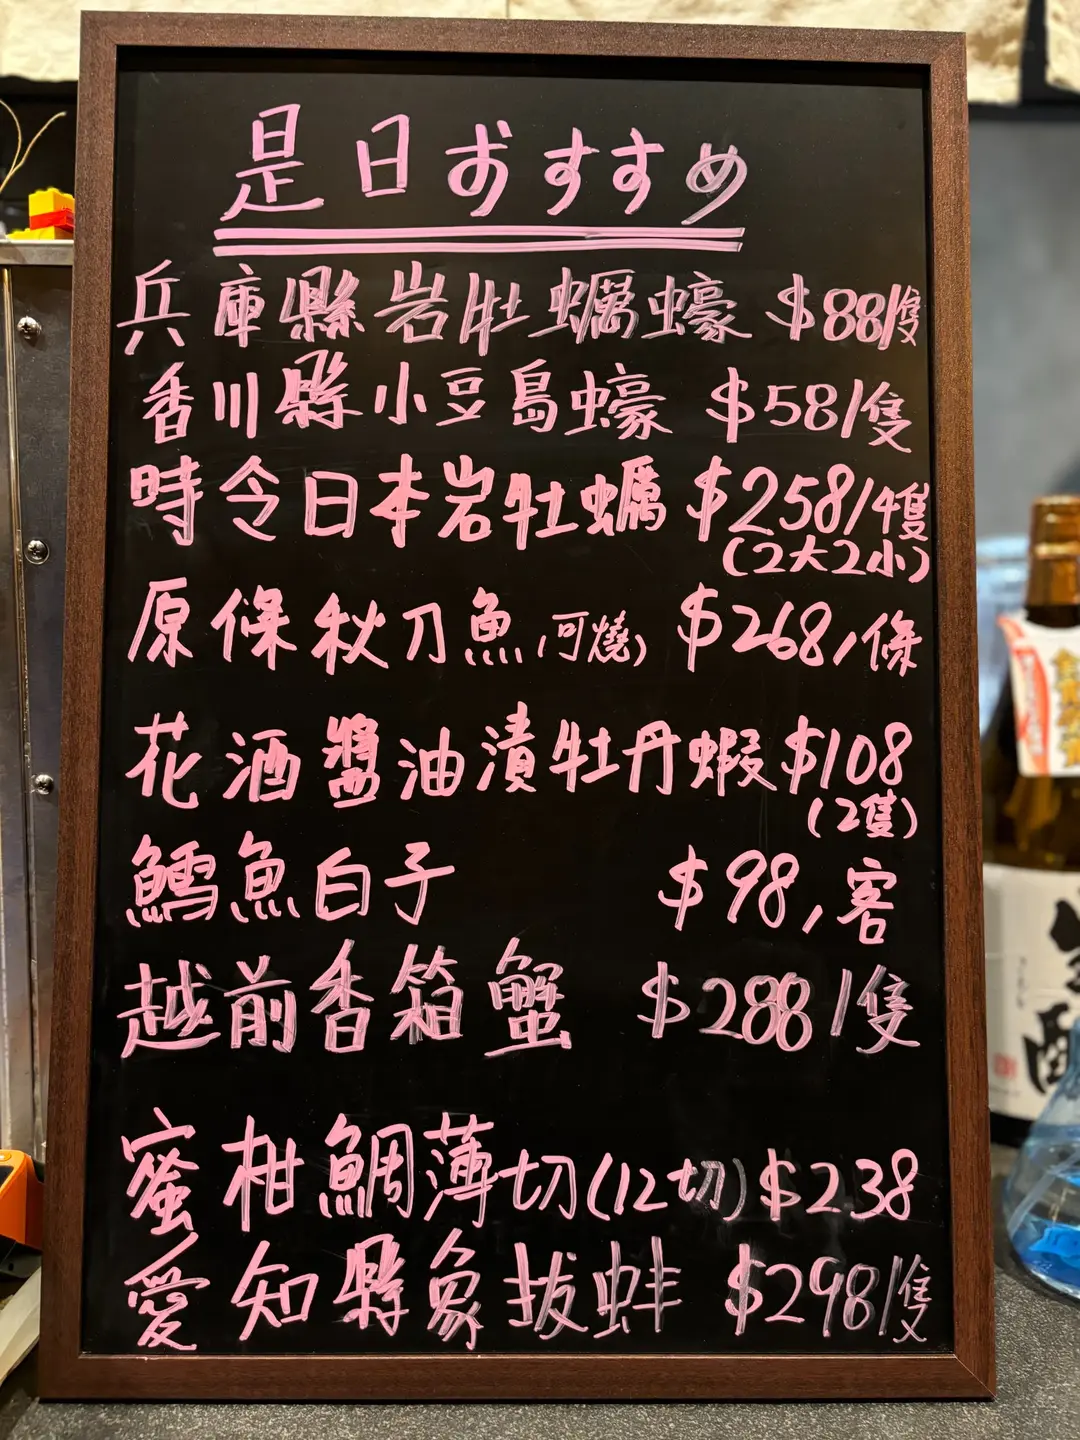 是日おすすめ
兵庫縣岩牡蠣蠔 $88/隻
香川縣小豆島蠔 $58/隻
時令日本岩牡蠣 $258/4隻
(2大2小)
原條秋刀魚(可燒) $268/條
花酒醬油漬牡丹蝦 $108
(2隻)
鱈魚白子 $98/客
越前香箱蟹 $288/隻
蜜柑鯛薄切(12切) $238
愛知縣象拔蚌 $298/隻